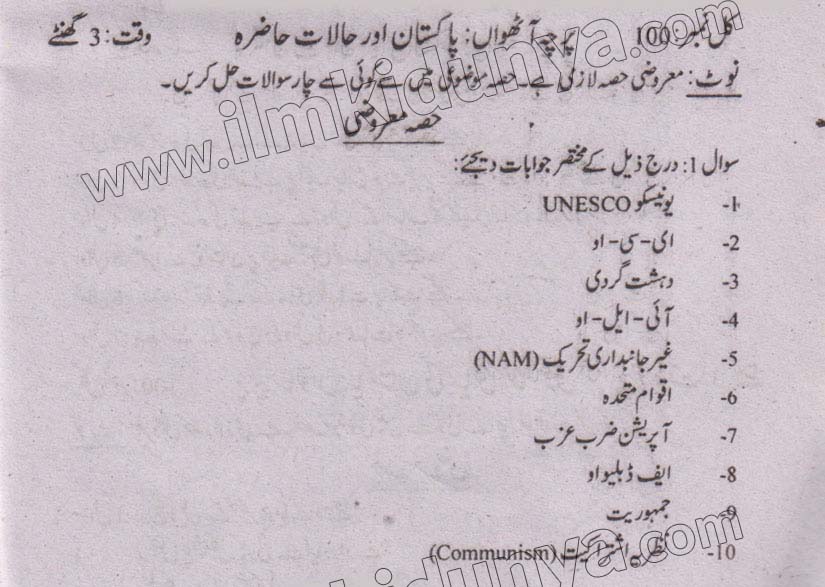 کل نمبر: 100 پرچہ آٹھواں: پاکستان اور حالات حاضرہ وقت: 3 گھنٹے
نوٹ: معروضی حصہ لازمی ہے۔ حصہ موضوعی میں سے کوئی سے چار سوالات حل کریں۔
حصہ معروضی
سوال 1: درج ذیل کے مختصر جوابات دیجئے:
-1 یونیسکو UNESCO
-2 ای-سی-او
-3 دہشت گردی
-4 آئی-ایل-او
-5 غیر جانبداری تحریک (NAM)
-6 اقوام متحدہ
-7 آپریشن ضرب عزب
-8 ایف ڈبلیو او
-9 جمہوریت
-10 نظریہ اشتراکیت (Communism)
www.ilmkidunya.com
www.ilmkidunya.com